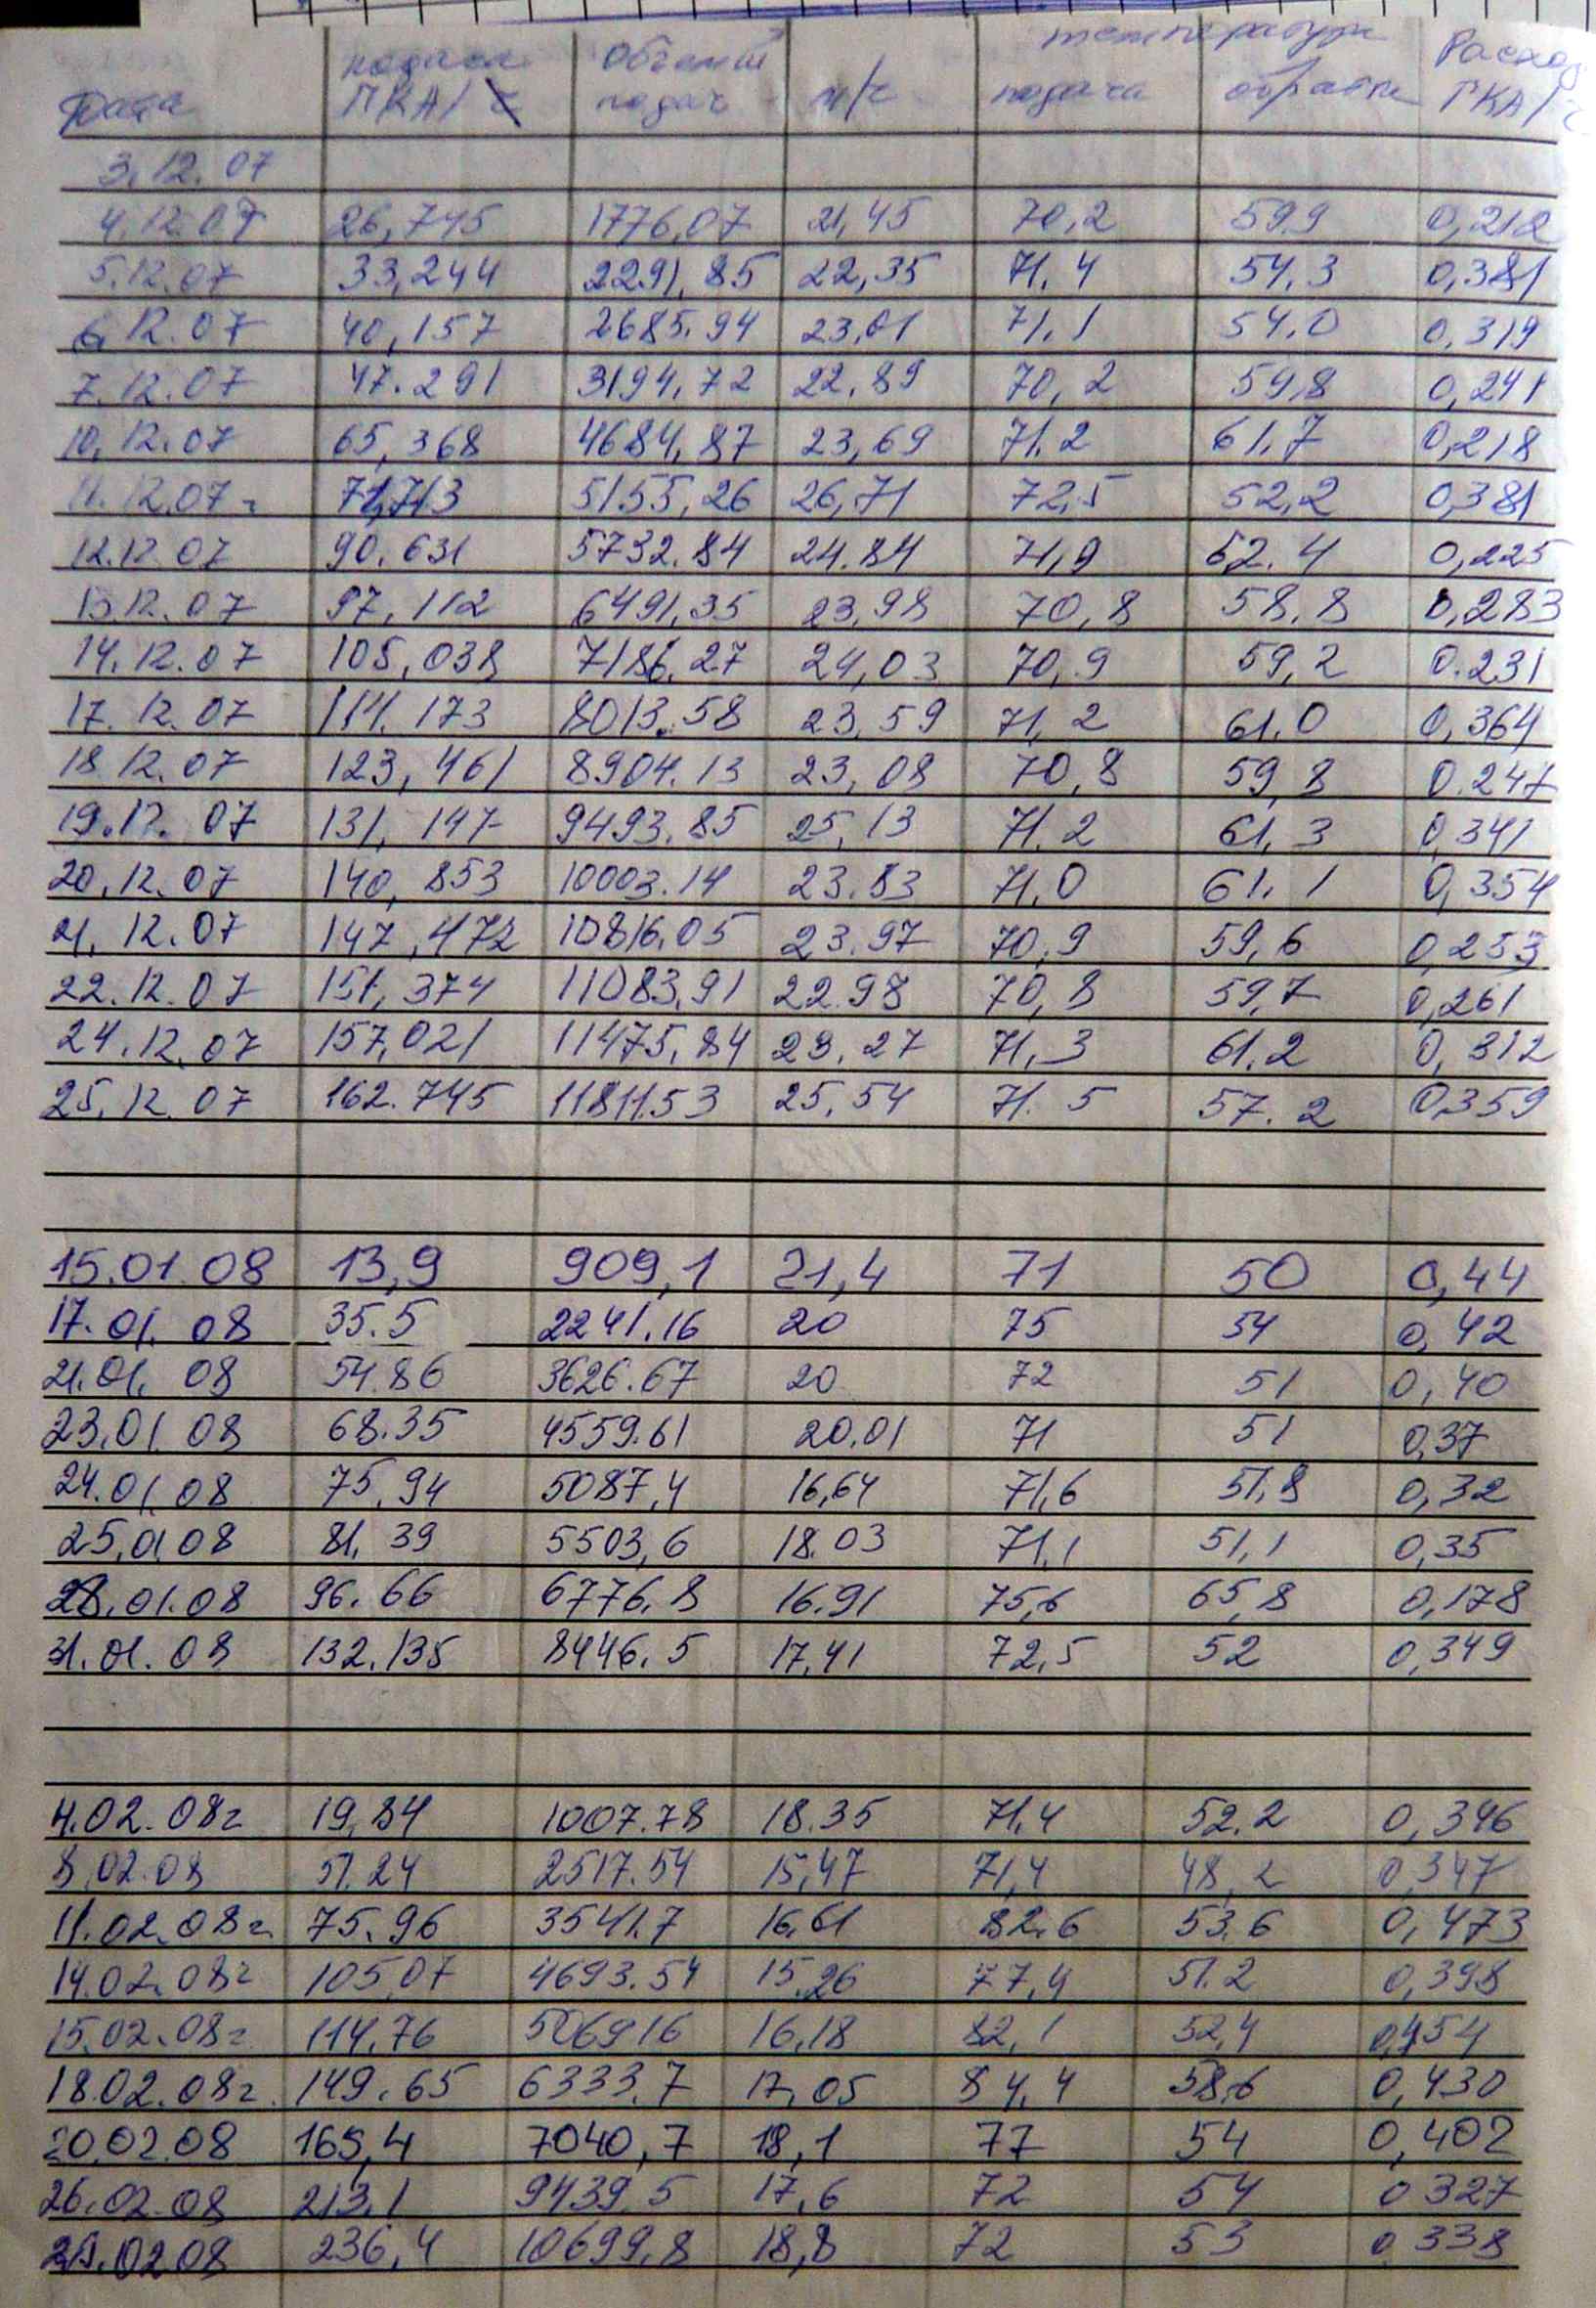 температура
Дата подача ГКАЛ/ч Объемы подач м/ч подача обратка Расход ГКАЛ/ч
3.12.07
4.12.07 26,745 1776,07 21,45 70,2 59,9 0,212
5.12.07 33,244 2291,85 22,35 71,4 54,3 0,381
6.12.07 40,157 2685.94 23,01 71,1 54,0 0,319
7.12.07 47.291 3194,72 22.89 70,2 59,8 0,241
10,12.07 65,368 4684,87 23,69 71.2 61.7 0,218
11.12.07г 71,713 5155,26 26,71 72,5 52,2 0,381
12.12.07 90.631 5732.84 24.84 71,9 62.4 0,225
13.12.07 97,112 6491,35 23,98 70,8 58.8 0,283
14.12.07 105,038 7186,27 24,03 70,9 59,2 0.231
17.12.07 114.173 8013.58 23,59 71,2 61.0 0,364
18.12.07 123,461 8904.13 23,08 70,8 59,8 0.247
19.12.07 131,147 9493.85 25,13 71.2 61,3 0,341
20.12.07 140,853 10003.14 23.83 71,0 61.1 0,354
21.12.07 147,472 10816,05 23.97 70,9 59,6 0,253
22.12.07 151,374 11083,91 22.98 70,8 59,7 0,261
24.12.07 157,021 11475,84 23.27 71,3 61.2 0,312
25.12.07 162.745 11811.53 25,54 71.5 57.2 0,359
15.01.08 13,9 909,1 21,4 71 50 0,44
17.01.08 35.5 2241.16 20 75 54 0,42
21.01.08 54.86 3626.67 20 72 51 0,40
23.01.08 68.35 4559.61 20,01 71 51 0,37
24.01.08 75,94 5087,4 16,64 71,6 51,8 0,32
25.01.08 81,39 5503,6 18.03 71,1 51,1 0,35
28.01.08 96.66 6776.8 16.91 75,6 65,8 0,178
31.01.08 132.135 8446.5 17,41 72,5 52 0,349
4.02.08г 19,84 1007.78 18.35 71,4 52.2 0,346
8.02.08 51.24 2517.54 15,47 71,4 48,2 0,347
11.02.08г 75.96 3541.7 16,61 82.6 53.6 0,473
14.02.08г 105,07 4693.54 15,26 77,4 51.2 0,398
15.02.08г 114.76 5069 16 16,18 82,1 52,4 0,454
18.02.08г. 149.65 6333.7 17,05 84,4 58,6 0,430
20.02.08 165,4 7040,7 18,1 77 54 0,402
26.02.08 213.1 9439.5 17,6 72 54 0 327
29.02.08 236,4 10699,8 18,8 72 53 0 338